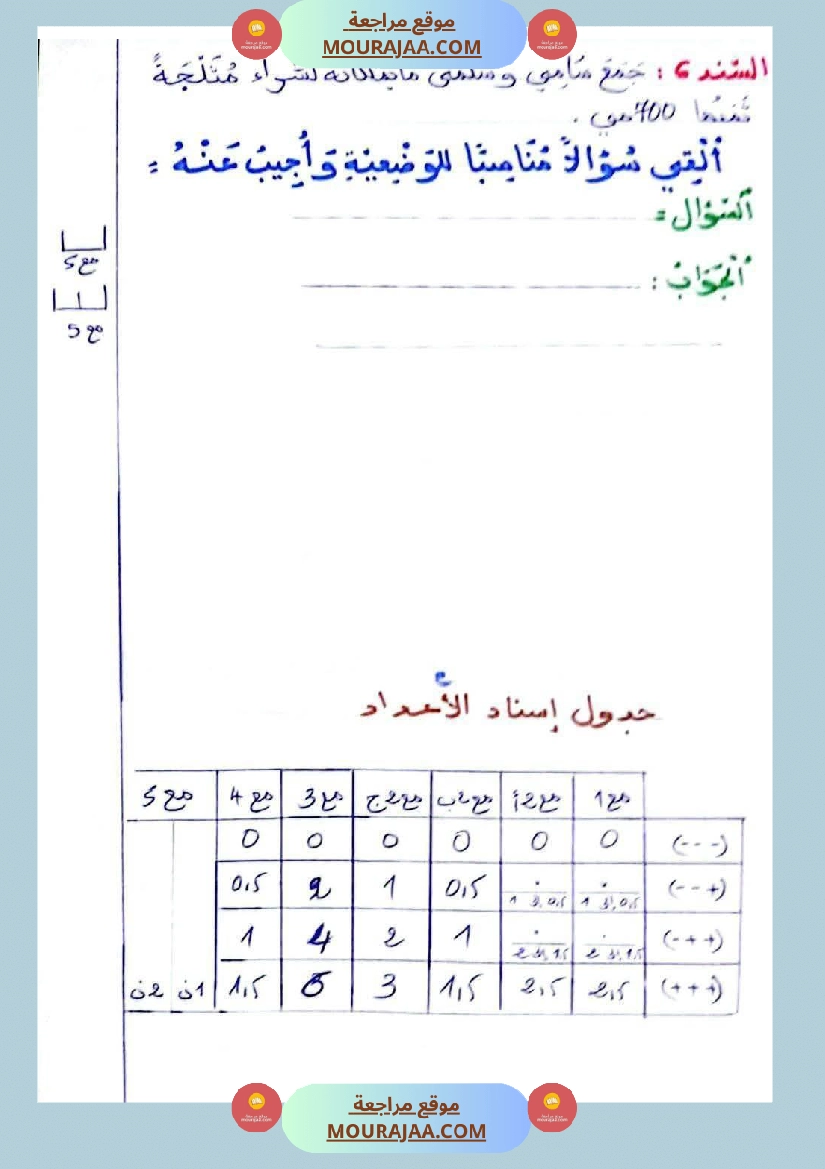 موقع مراجعة
MOURAJAA.COM
السّند 6 : جَمَعَ سَامِي وَسَلْمَى مَا يَمْلِكَانِهِ لِشِرَاءِ مُثَلَّجَةً
ثَمَنُهَا 700مي .
أُلْقِي سُؤَالاً مُنَاسِبًا لِلْوَضْعِيَّةِ وَأُجِيبُ عَنْهُ :
السُّؤَال :
الجَوَابُ :
مع 5
مع 5
جدول إسناد الأعداد
مع 1 مع 2أ مع 2ب مع 2ج مع 3 مع 4 مع 5
(- - -) 0 0 0 0 0 0
(- - +) 0,5 أو 1 0,5 أو 1 0,5 1 2 0,5
(- + +) 1,5 أو 2 1,5 أو 2 1 2 4 1
(+ + +) 2,5 2,5 1,5 3 5 1,5 1ن 2ن
موقع مراجعة
MOURAJAA.COM